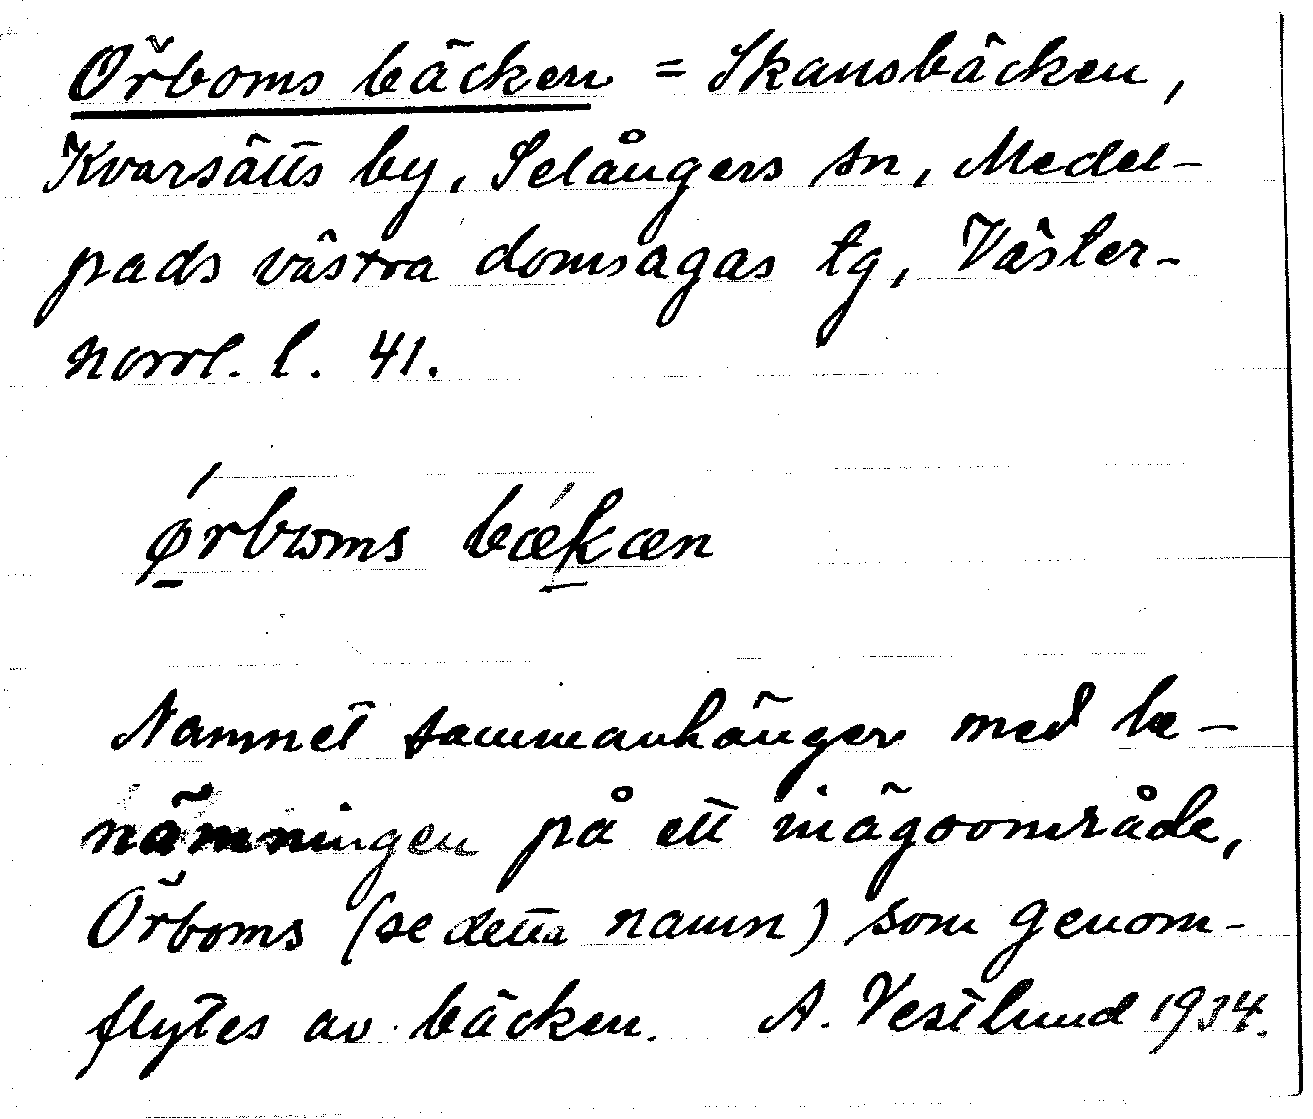 Örboms bäcken = Skansbäcken,
Kvarsätts by, Selångers sn, Medel-
pads västra domsagas tg, Väster-
norrl. l. 41.
ǿrbωms bǽkæn
Namnet sammanhänger med be-
nämningen på ett inägoområde,
Örboms (se detta namn) som genom-
flytes av bäcken. A. Vestlund 1934.